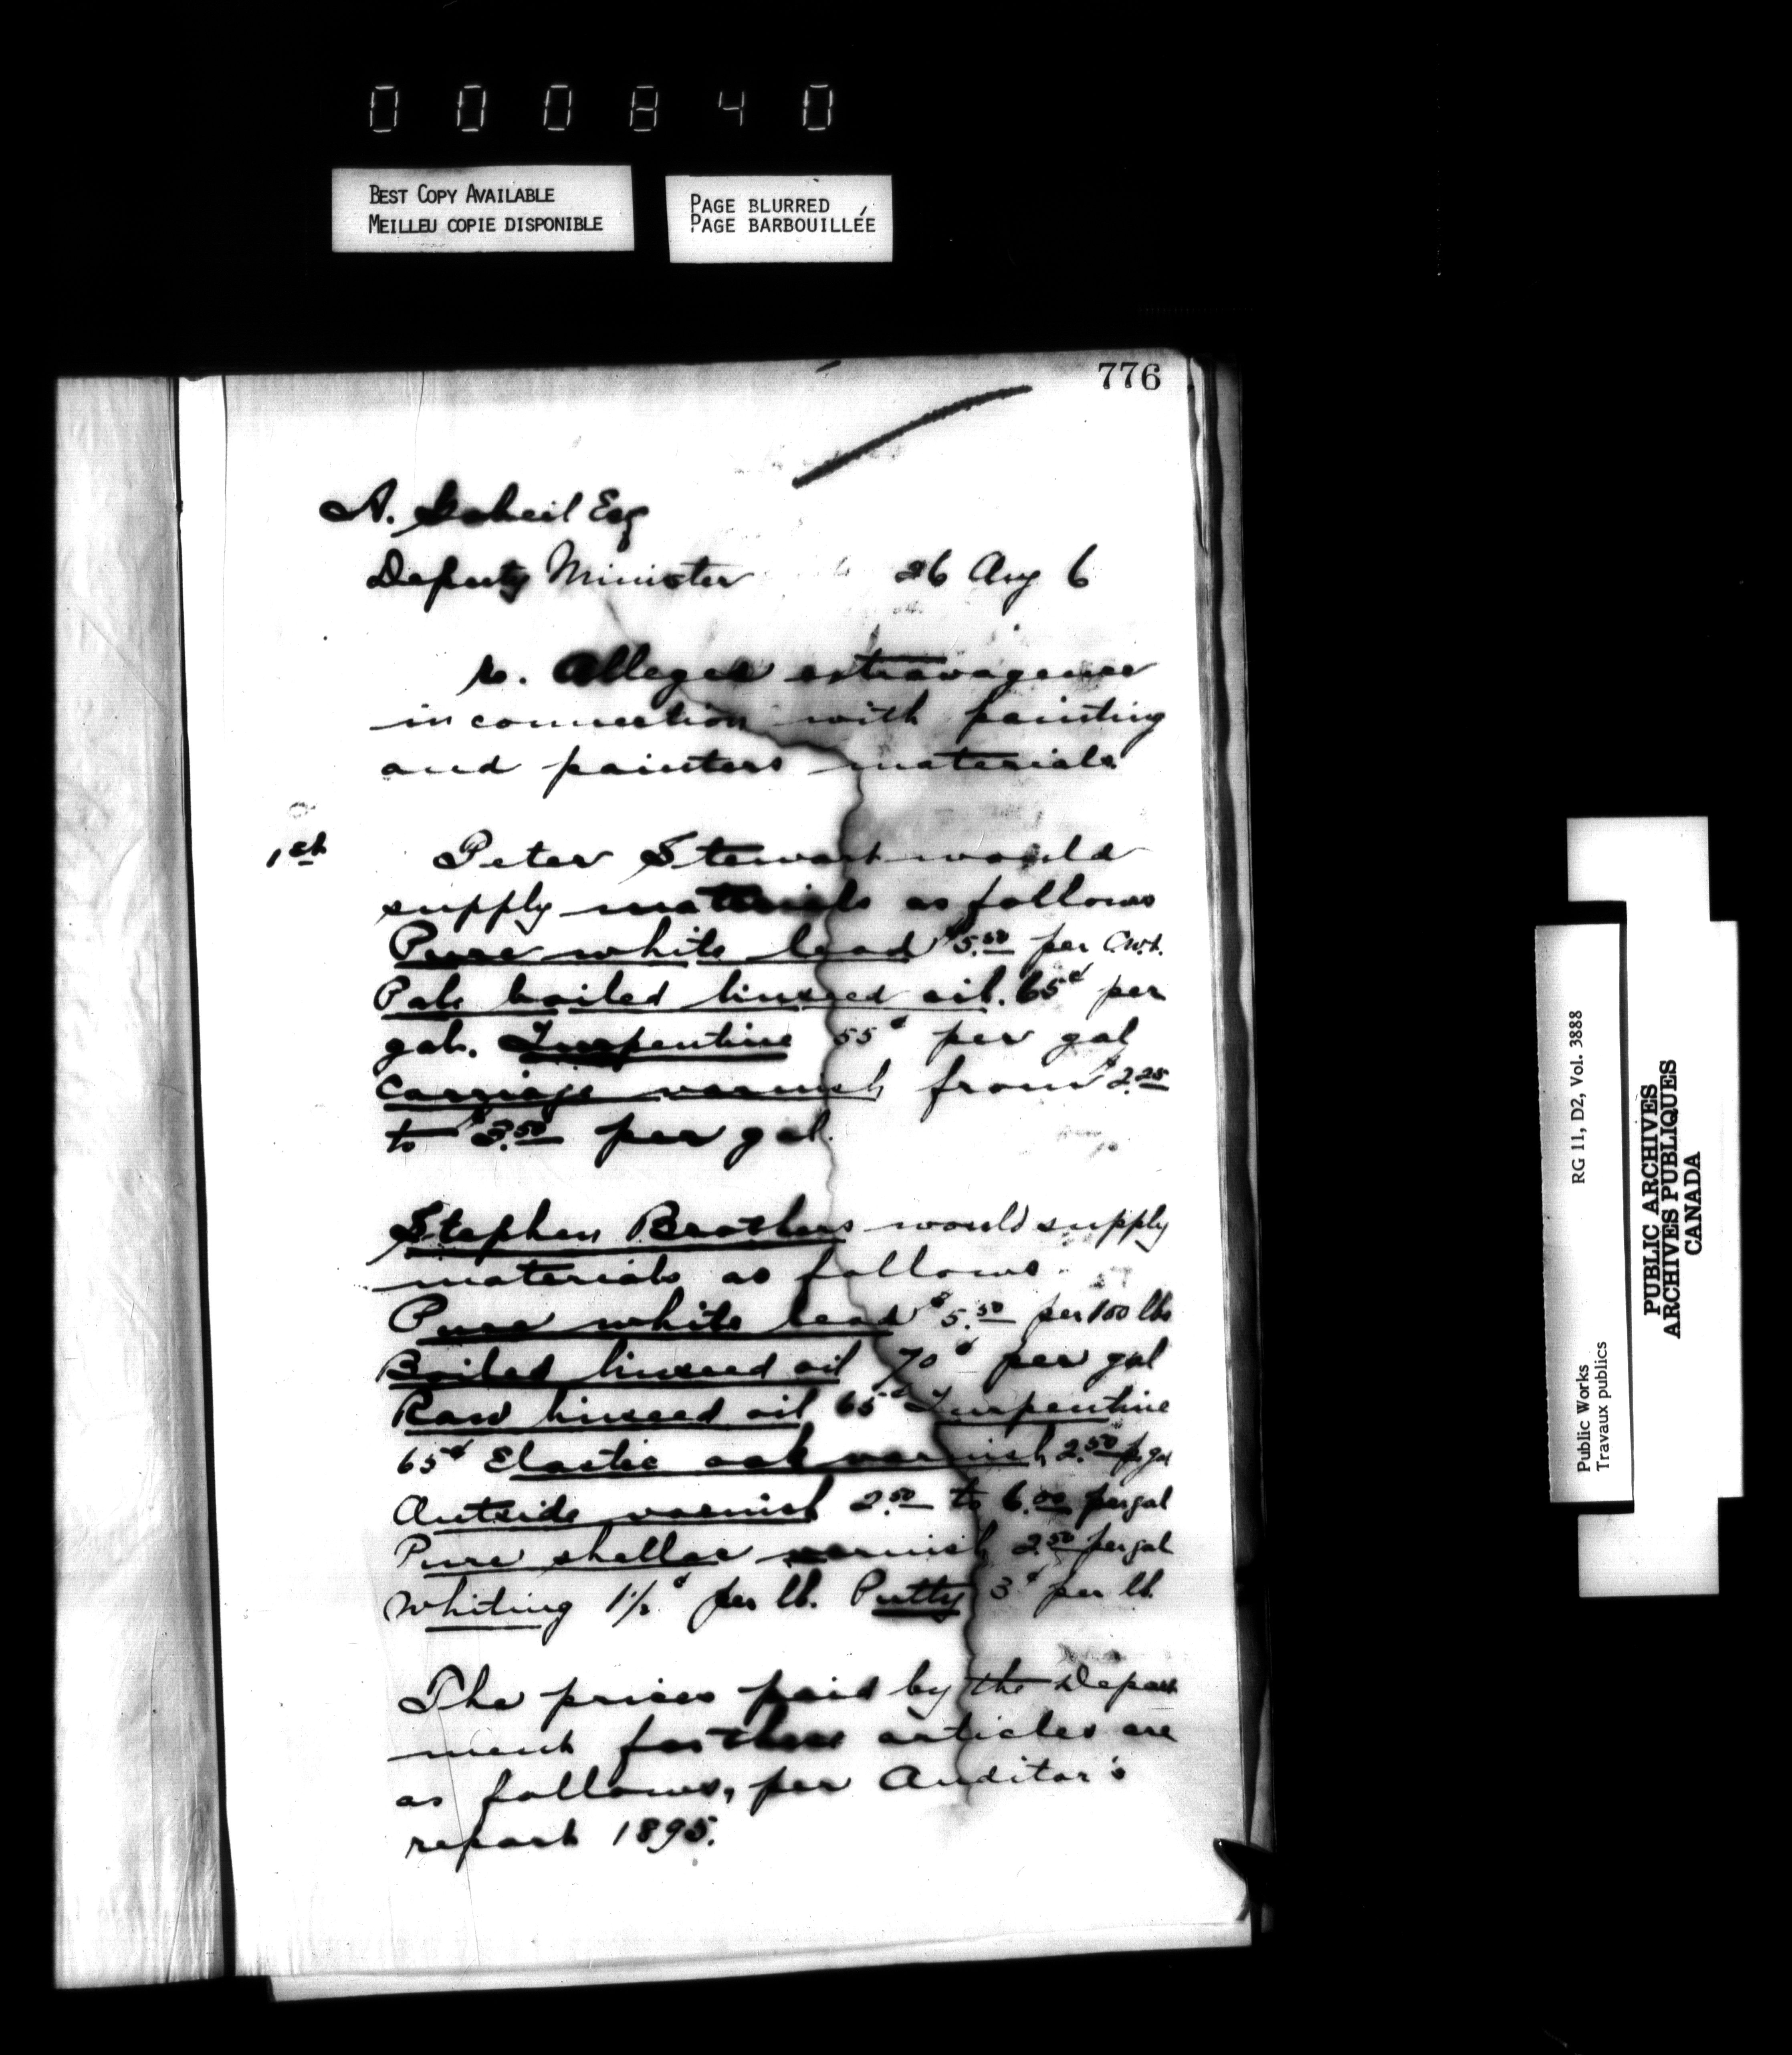 000840
BEST COPY AVAILABLE
MEILLEU COPIE DISPONIBLE
PAGE BLURRED
PAGE BARBOUILLÉE
776
A. Gobeil Esq
Deputy Minister 26 Aug 6
re. Alleged extravagance
in connection with painting
and painters materials
1st Peter Stewart would
supply materials as follows
Pure white lead $5.50 per Cwt.
Pale boiled linseed oil. 65¢ per
gal. Turpentine 55¢ per gal
Carriage varnish from $2.25
to $3.50 per gal.
Stephen Brothers would supply
materials as follows
Pure white lead $5.50 per 100 lbs
Boiled linseed oil 70¢ per gal
Raw linseed oil 65¢ Turpentine
65¢ Elastic oak varnish 2.50 p gal
Outside varnish 2.50 to 6.00 per gal
Pure shellac varnish 2.50 per gal
Whiting 1½¢ per lb. Putty 3¢ per lb.
The prices paid by the Depart
ment for these articles are
as follows, per Auditor's
report 1895.
Public Works
Travaux publics
RG 11, D2, Vol. 3888
PUBLIC ARCHIVES
ARCHIVES PUBLIQUES
CANADA